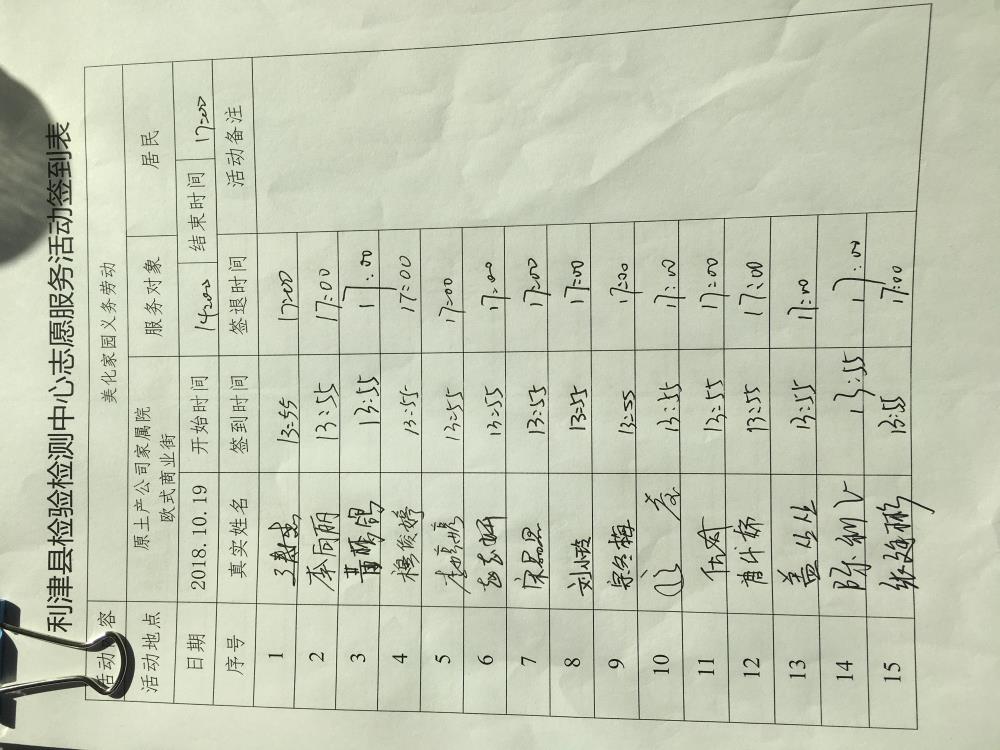 利津县检验检测中心志愿服务活动签到表
活动 容 美化家园义务劳动
活动地点 原土产公司家属院 欧式商业街 服务对象 居民
日期 2018.10.19 开始时间 14:00 结束时间 17:00
序号 真实姓名 签到时间 签退时间 活动备注
1 13:55 17:00
2 李向丽 13:55 17:00
3 13:55 17:00
4 穆俊娉 13:55 17:00
5 13:55 17:00
6 13:55 17:00
7 宋晶晶 13:55 17:00
8 刘小波 13:55 17:00
9 宗冬梅 13:55 17:00
10 13:55 17:00
11 13:55 17:00
12 13:55 17:00
13 盖丛丛 13:55 17:00
14 13:55 17:00
15 13:55 17:00